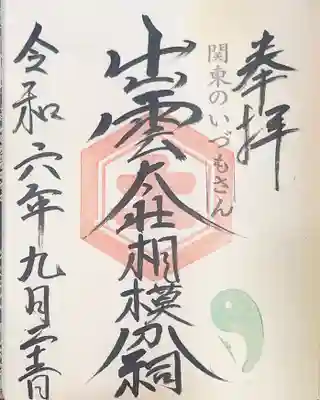 奉拝
関東のいづもさん
出雲大社相模分祠
令和六年九月二十三日